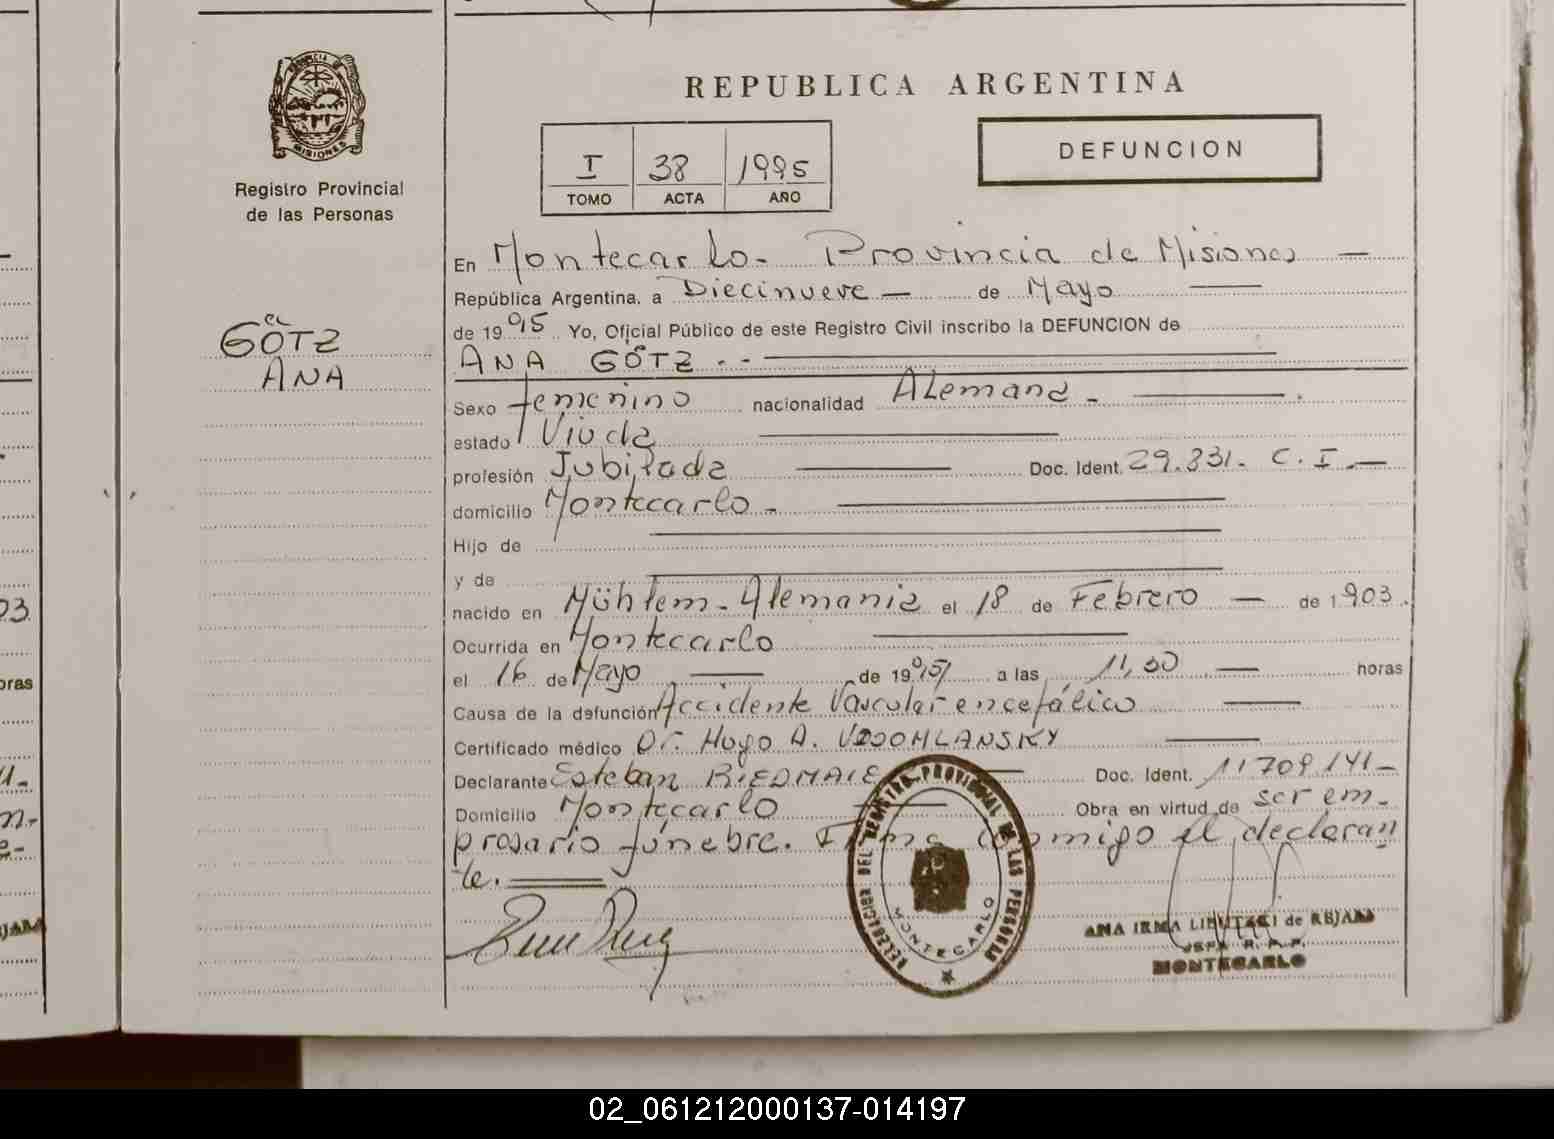 PROVINCIA DE
MISIONES
Registro Provincial
de las Personas
REPUBLICA ARGENTINA
I 38 1995
TOMO ACTA AÑO
DEFUNCION
GÖTZ
ANA
En Montecarlo - Provincia de Misiones —
República Argentina, a Diecinueve — de Mayo —
de 1995 Yo, Oficial Público de este Registro Civil inscribo la DEFUNCION de
ANA GÖTZ . - —
Sexo femenino nacionalidad Alemana - — .
estado Viuda —
profesión Jubilada — Doc. Ident. 29.331- C.I.—
domicilio Montecarlo - —
Hijo de —
y de —
nacido en Mühlem - Alemania el 18 de Febrero — de 1903.
Ocurrida en Montecarlo —
el 16 de Mayo — de 1995 a las 11,00 — horas
Causa de la defunción Accidente Vascular encefálico —
Certificado médico Dr. Hugo A. —
Declarante Esteban Doc. Ident. 11709141-
Domicilio Montecarlo — Obra en virtud de ser em-
presario fúnebre. Firma conmigo el declaran
te. —
DELEGACION DEL REGISTRO PROVINCIAL DE LAS PERSONAS
MONTECARLO
ANA IRMA de
JEFA R. P. P.
MONTECARLO
23.
oras
02_061212000137-014197